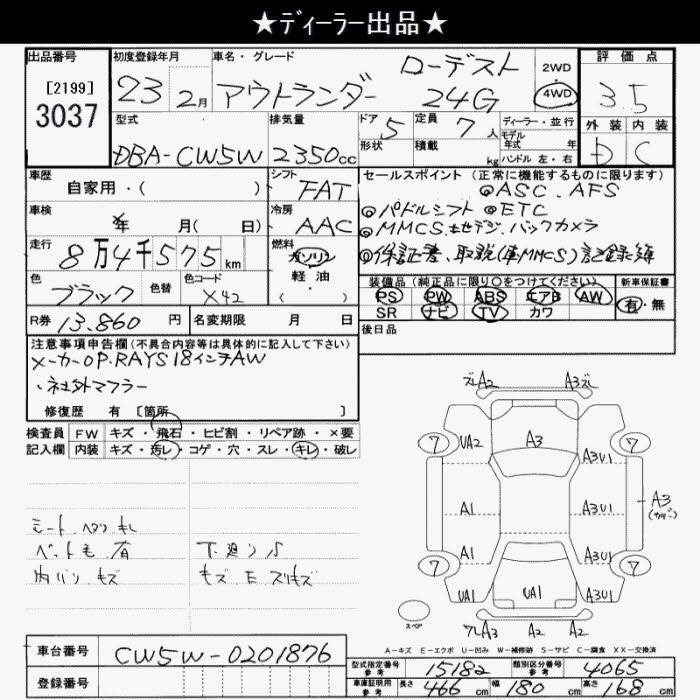 ★ディーラー出品★
出品番号 初度登録年月 車名・グレード 評価点
[2199] 3037
23 2月 アウトランダー ローデスト 24G 2WD・4WD 3.5
型式 排気量 ドア 5 定員 7人 ディーラー・並行 外装 内装
形状 積載 kg モデル年式 年 ハンドル 左・右
DBA-CW5W 2350cc D C
車歴 自家用・( ) シフト FAT
セールスポイント(正常に機能するものに限ります)
◎ASC.AFS
車検 年 月( 日) 冷房 AAC
◎パドルシフト ◎ETC
◎MMCS.地デジ.バックカメラ
走行 8万4千575km 燃料 ガソリン 軽油 ・( )
◎保証書、取説(車.MMCS)記録簿
色 ブラック 色替 色コード X42
装備品(純正品に限り○をつけてください) 新車保証書
PS PW ABS エアB AW 有・無
SR ナビ TV カワ
R券 13.860円 名変期限 月 日
後日品
注意事項申告欄(不具合内容等は具体的に記入して下さい)
メーカーOP.RAYS18インチAW
・社外マフラー
修復歴 有 [箇所 ]
検査員 FW キズ・飛石・ヒビ割・リペア跡・×要
記入欄 内装 キズ・汚レ・コゲ・穴・スレ・キレ・破レ
シート キレ
ペット毛 有 下廻りS
内バリ キズ キズ E スリキズ
ズレA2 A3ズレ
7 UA2 A3 A3U1 7
A1 A3U1 A3
A1 A3U1
7 UA1 UA1 A3U1 7
スペア A3 A2 A2
A-キズ E-エクボ U-凹み W-補修跡 S-サビ C-腐食 XX-交換済
車台番号 CW5W-0201876
登録番号
型式指定番号 参考 15182 類別区分番号 参考 4065
車庫証明用 参考 長さ 466cm 幅 180cm 高さ 168cm